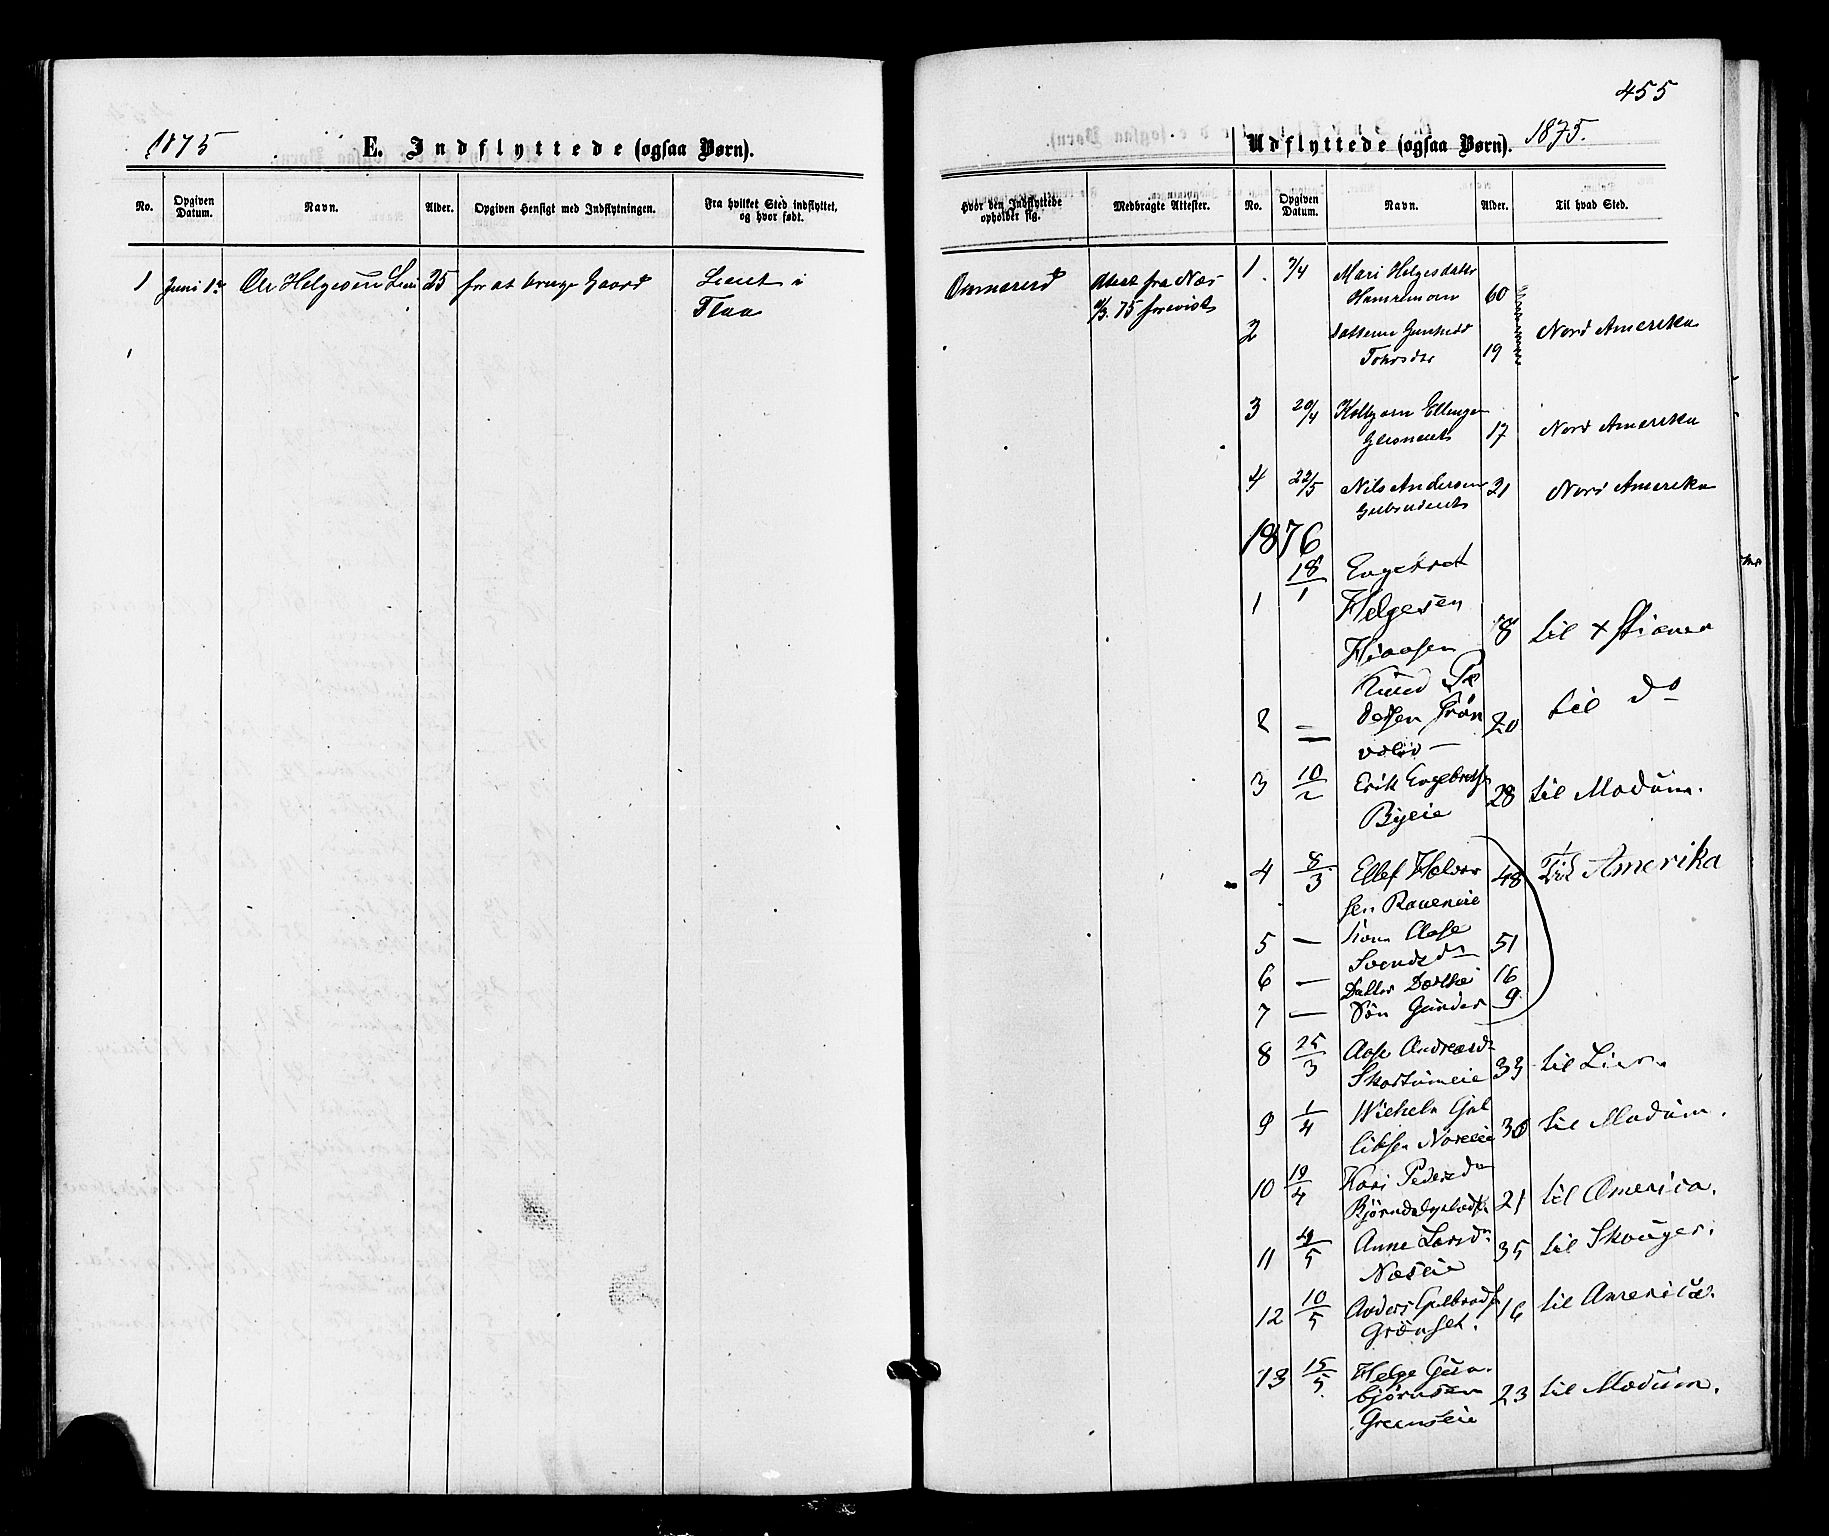 455
1875 E. Indflyttede (ogsaa Børn).
Udflyttede (ogsaa Børn). 1875.
No. Opgiven Datum. Navn. Alder. Opgiven Hensigt med Indflytningen. Fra hvilket Sted indflyttet, og hvor født.
Hvor den Indflyttede opholder sig. Medbragte Attester. No. Opgiven Datum. Navn. Alder. Til hvad Sted.
1 Juni Ole Helgesen 25 for at bruge Gaard i
Flaa
Attest fra Næs
75 forevist
1 7/4 Mari Helgesdatter
60
2 Datteren Gunhild
19 Nord Amerika
3 20/4 Kolbjørn Ellingsen
17 Nord Amerika
4 22/5 Nils Andersen 21 Nord Amerika
1876
18/1 Engebret
1 Helgesen 78 til
Knud Pe
2 — dersen 20 til do
3 10/2 Erik Engebretsen 28 til Modum.
Byeie
4 8/3 Ellef Halvor 48 Til Amerika
sen Raueneie
5 — Kone Aase
Svendsdr 51
6 — Datter Dorthe 16
7 — Søn Gunder 9
8 25/3 Aase Andreasdr
33 til Lier.
9 1/4 Wilhelm Gul
liksen Noreeie 30 til Modum.
10 19/4 Kari Pedersdr
21 til America.
11 5 Anne Larsdr 35 til Skouger.
Næseie
12 10/5 Anders Gulbrandsen 16 til America.
Grønset.
13 15/5 Helge Gun-
bjørnsen 23 til Modum.